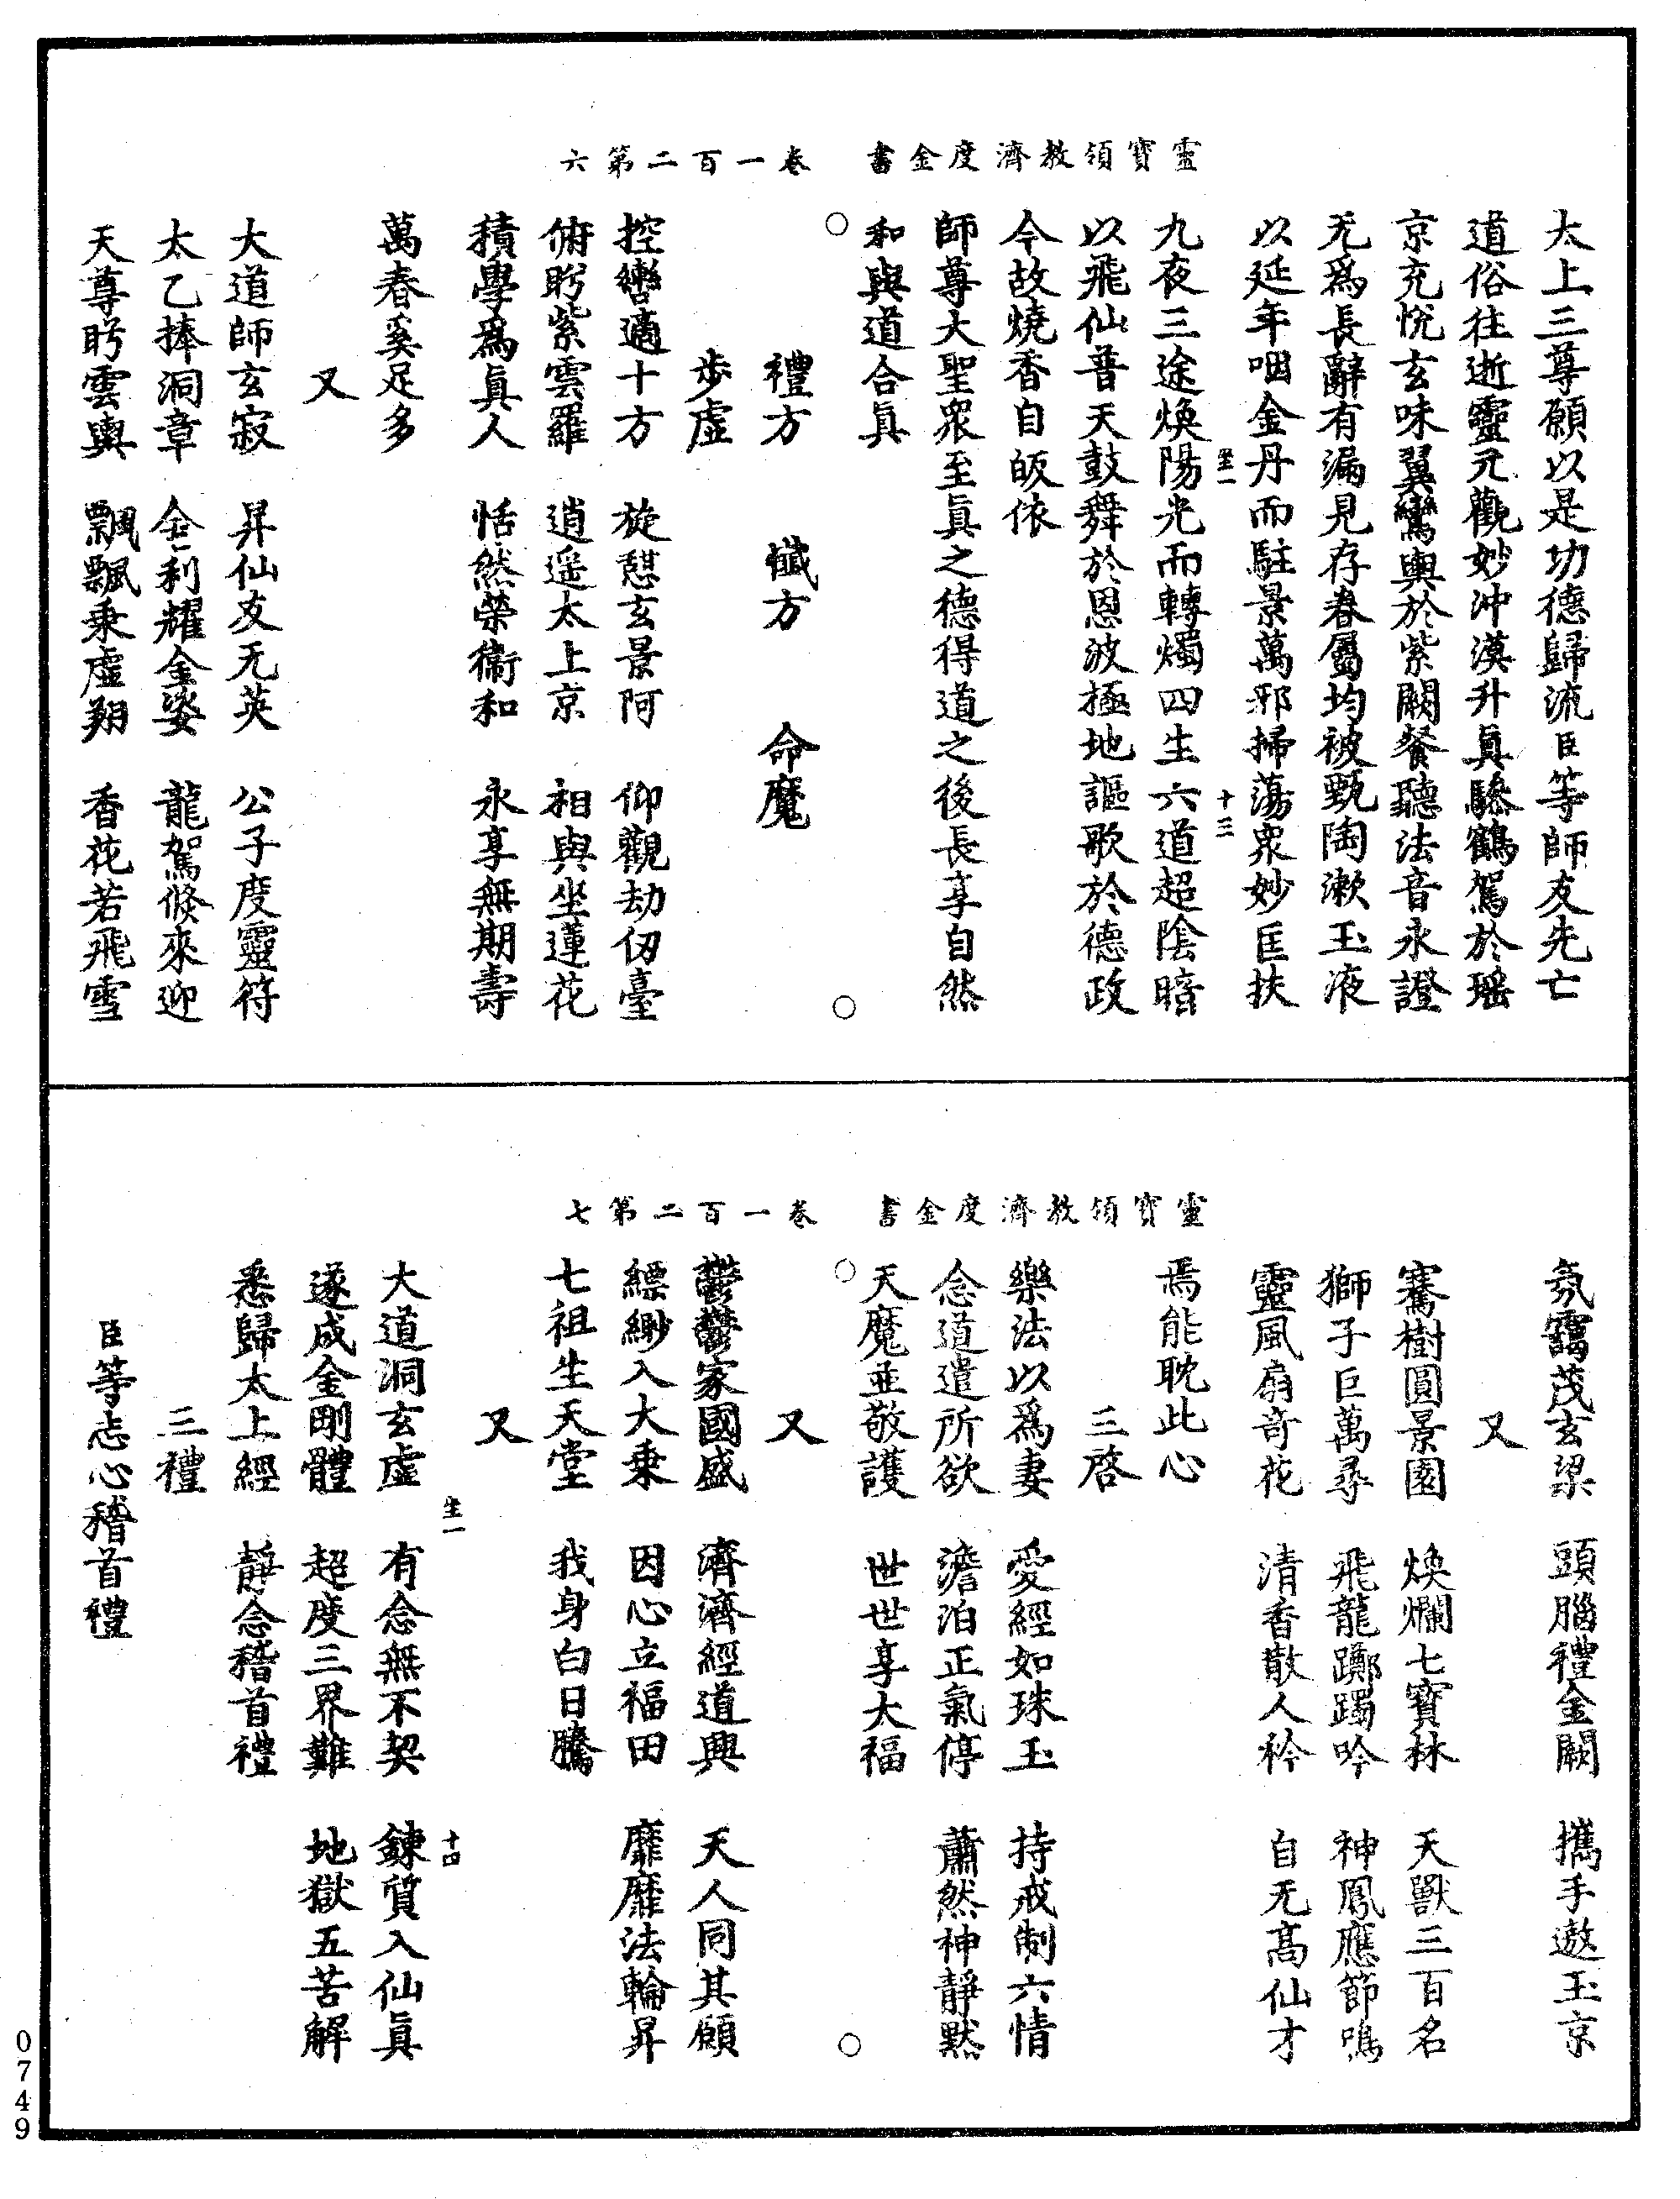 靈寶領教濟度金書　卷一百二第六
太上三尊願以是功德歸流臣等師友先亡
道俗往逝靈元觀妙沖漠升眞驂鶴駕於瑶
京充悅玄味翼鸞輿於紫闕餐聽法音永證
无爲長辭有漏見存眷屬均被甄陶漱玉液
以延年咽金丹而駐景萬邪掃蕩衆妙匡扶
一　十三
九夜三途煥陽光而轉燭四生六道超陰暗
以飛仙普天鼓舞於恩波極地謳歌於德政
今故燒香自皈依
師尊大聖衆至眞之德得道之後長享自然
和與道合眞
○　○
禮方　懺方　命魔
步虛
控轡適十方　旋憇玄景阿　仰觀劫仞臺
俯眄紫雲羅　逍遥太上京　相與坐蓮花
積學爲眞人　恬然榮衞和　永享無期壽
萬春奚足多
又
大道師玄寂　昇仙友无英　公子度靈符
太乙捧洞章　金利耀金姿　龍駕倐來迎
天尊眄雲輿　飄飄乗虛翔　香花若飛雪
靈寶領教濟度金書　卷一百二第七
氛靄茂玄梁　頭腦禮金闕　攜手遨玉京
又
騫樹圓景園　煥爛七寶林　天獸三百名
獅子巨萬尋　飛龍躑躅吟　神鳳應節鳴
靈風扇奇花　清香散人衿　自无高仙才
焉能耽此心
三啓
樂法以爲妻　愛經如珠玉　持戒制六情
念道遣所欲　澹泊正氣停　蕭然神靜默
天魔並敬護　世世享大福
○　○
又
鬱鬱家國盛　濟濟經道興　天人同其願
縹緲入大乗　因心立福田　靡靡法輪昇
七祖生天堂　我身白日騰
又
生一　十四
大道洞玄虛　有念無不契　鍊質入仙眞
遂成金剛體　超度三界難　地獄五苦解
悉歸太上經　靜念稽首禮
三禮
臣等志心稽首禮
0749